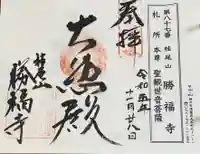 第八十七番 桂尾山
札所 勝福寺
本尊 聖観世音菩薩
奉拝
令和五年
十一月廿八日
大悲殿
勝福寺